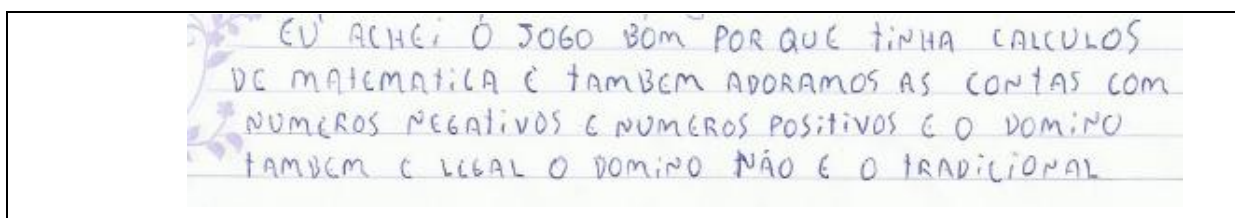 EU ACHEI O JOGO BOM POR QUE TINHA CALCULOS
DE MATEMATICA E TAMBEM ADORAMOS AS CONTAS COM
NUMEROS NEGATIVOS E NUMEROS POSITIVOS E O DOMINO
TAMBEM E LEGAL O DOMINO NÃO E O TRADICIONAL